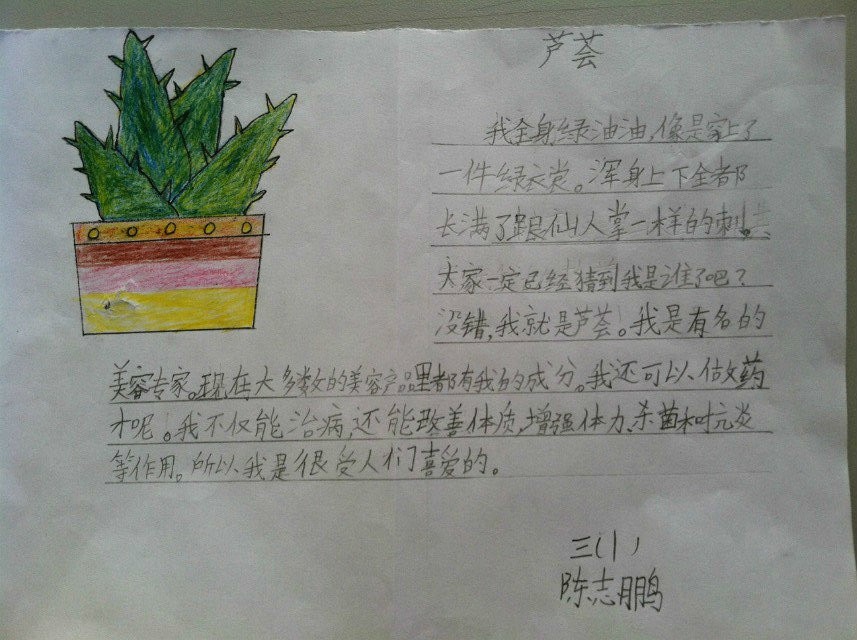 芦荟
我全身绿油油，像是穿上了
一件绿衣裳。浑身上下全都
长满了跟仙人掌一样的刺。
大家一定已经猜到我是谁了吧？
没错，我就是芦荟。我是有名的
美容专家。现在大多数的美容产品里都有我的成分。我还可以做药
才呢。我不仅能治病，还能改善体质，增强体力、杀菌和抗炎
等作用。所以我是很受人们喜爱的。
三(1)
陈志鹏